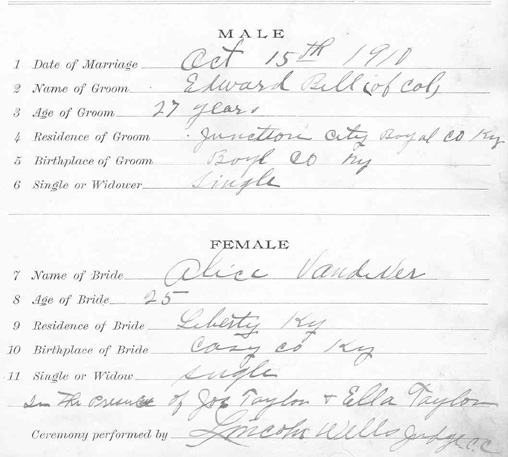 MALE
1 Date of Marriage Oct 15TH 1910
2 Name of Groom Edward Bell (of col)
3 Age of Groom 27 years
4 Residence of Groom Junction City Boyal Co Ky
5 Birthplace of Groom Boyl Co Ky
6 Single or Widower Single
FEMALE
7 Name of Bride Alice Vandiver
8 Age of Bride 25
9 Residence of Bride Liberty Ky
10 Birthplace of Bride Casy Co Ky
11 Single or Widow single
In The Presence of Joe Taylor + Ella Taylor
Ceremony performed by Lincoln Wells Judge C.C